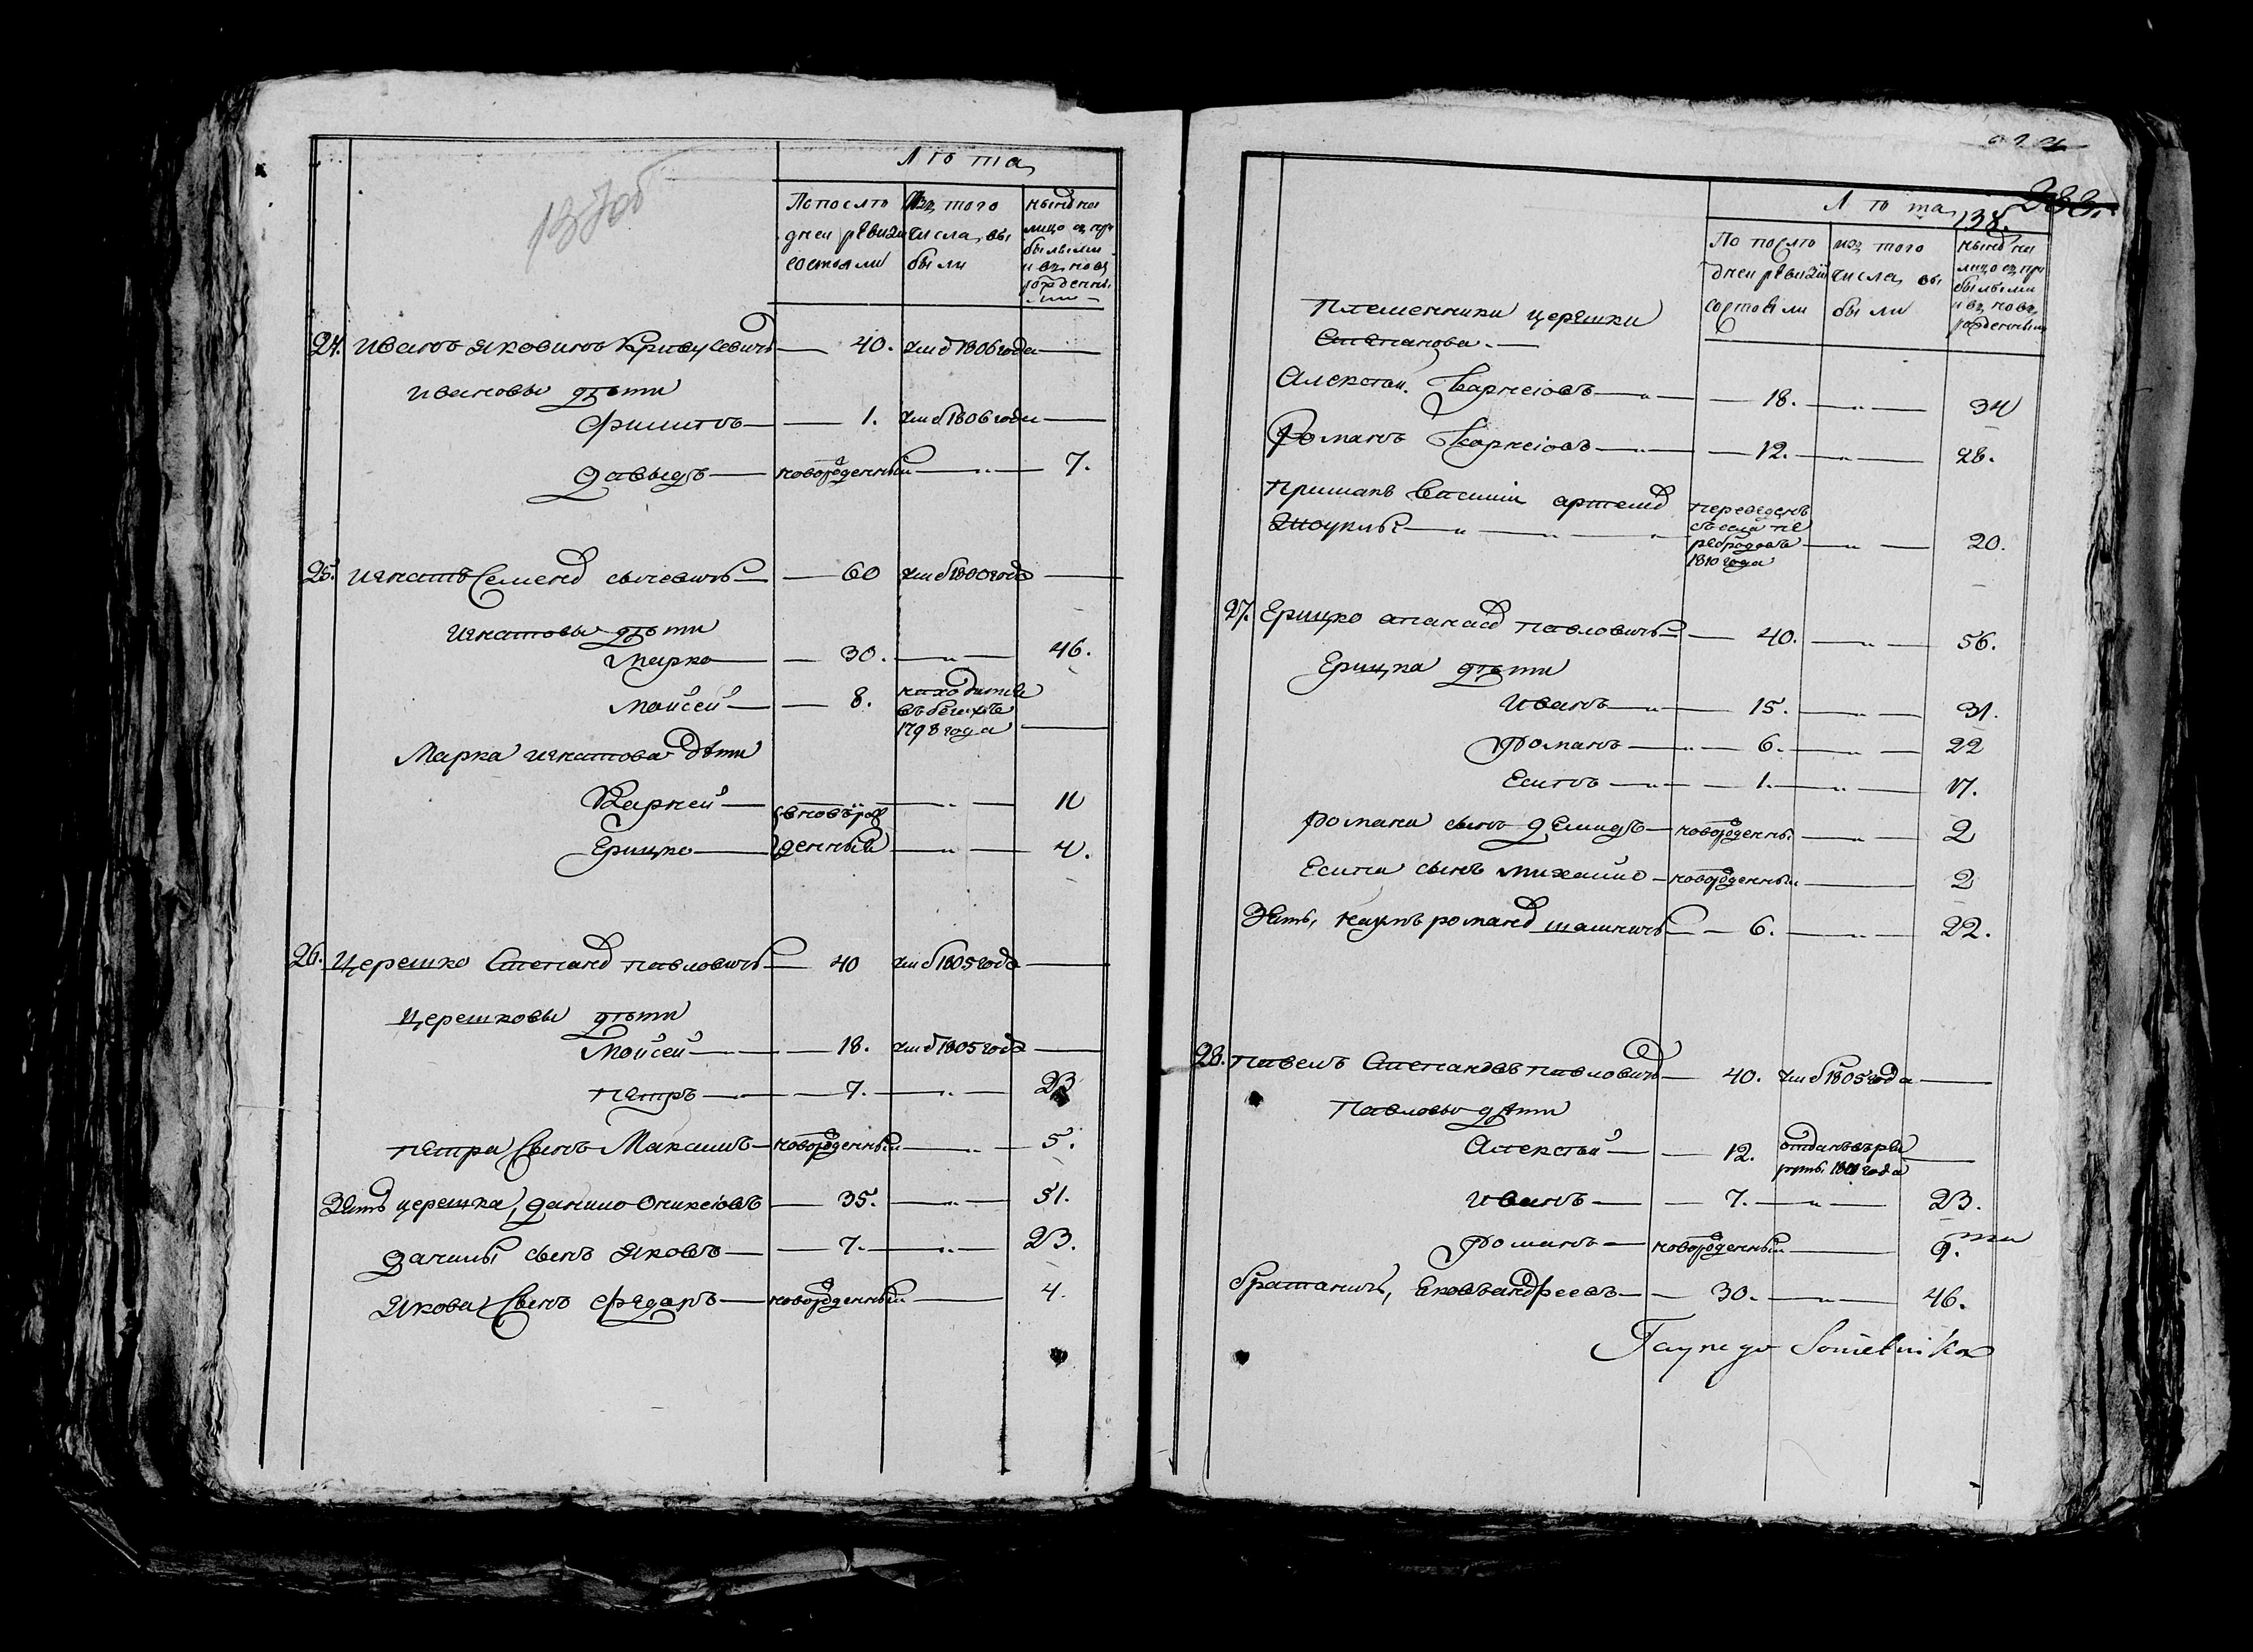 137об
Лѣта
По послѣ
дней ревизіи
состояли
Изъ того
числа вы
были
нынѣ на
лицо съ при
былыми
и въ новь
рожденны
ми
24. Иванъ Яковинъ Кривусевичъ — 40. умеръ 1806 года —
Ивановы дѣти
Филипъ — 1. умеръ 1806 года —
Давыдъ — новорожденный — 7.
25. Игнатъ Семеновъ — 60 умеръ 1800 года —
Игнатовы дѣти
Марко — 30. — 46.
Мойсей — 8. находится
въ бегахъ
1798 года —
Марка Игнатова дѣти
Карней — вновь рож — 11
Ерицко — денный — 4.
26. Церешко Степановъ Павловичъ — 40 умеръ 1805 года —
Церешковы дѣти
Мойсей — 18. умеръ 1805 года —
Петръ — 7. — 23
Петра сынъ Максимъ — новорожденный — 5.
Зять церешка, Данило Оникеіовъ — 35. — 51.
Данилы сынъ Яковъ — 7. — 23.
Якова сынъ Федоръ — новорожденный — 4.
138.
Лѣта
По послѣ
дней ревизіи
состояли
изъ того
числа вы
были
нынѣ на
лицо съ при
былыми
и въ новь
рожденными
Племенники церешки
Степанова. —
Алексѣй Карнеіовъ — 18. — 34
Романъ Карнеіовъ — 12. — 28.
Примакъ Василій — переведенъ
съ села Пе
ребродовъ
1810 года — 20.
27. Ерицко Апанасовъ Павловичъ — 40. — 56.
Ерицка дѣти
Иванъ — 15. — 31.
Романъ — 6. — 22
Есипъ — 1. — 17.
Романа сынъ Демидъ — новорожденны — 2
Есипа сынъ Михайло — новорожденный — 2
Зять, Наумъ Романовъ — 6. — 22.
28. Павелъ Степановъ Павловичъ — 40. умеръ 1805 года —
Павловы дѣти
Алексѣй — 12. отданъ въ рек
руты года —
Иванъ — 7. — 23.
Романъ — новорожденный — 9.ти
братаничъ, Яковъ Андреевъ — 30. — 46.